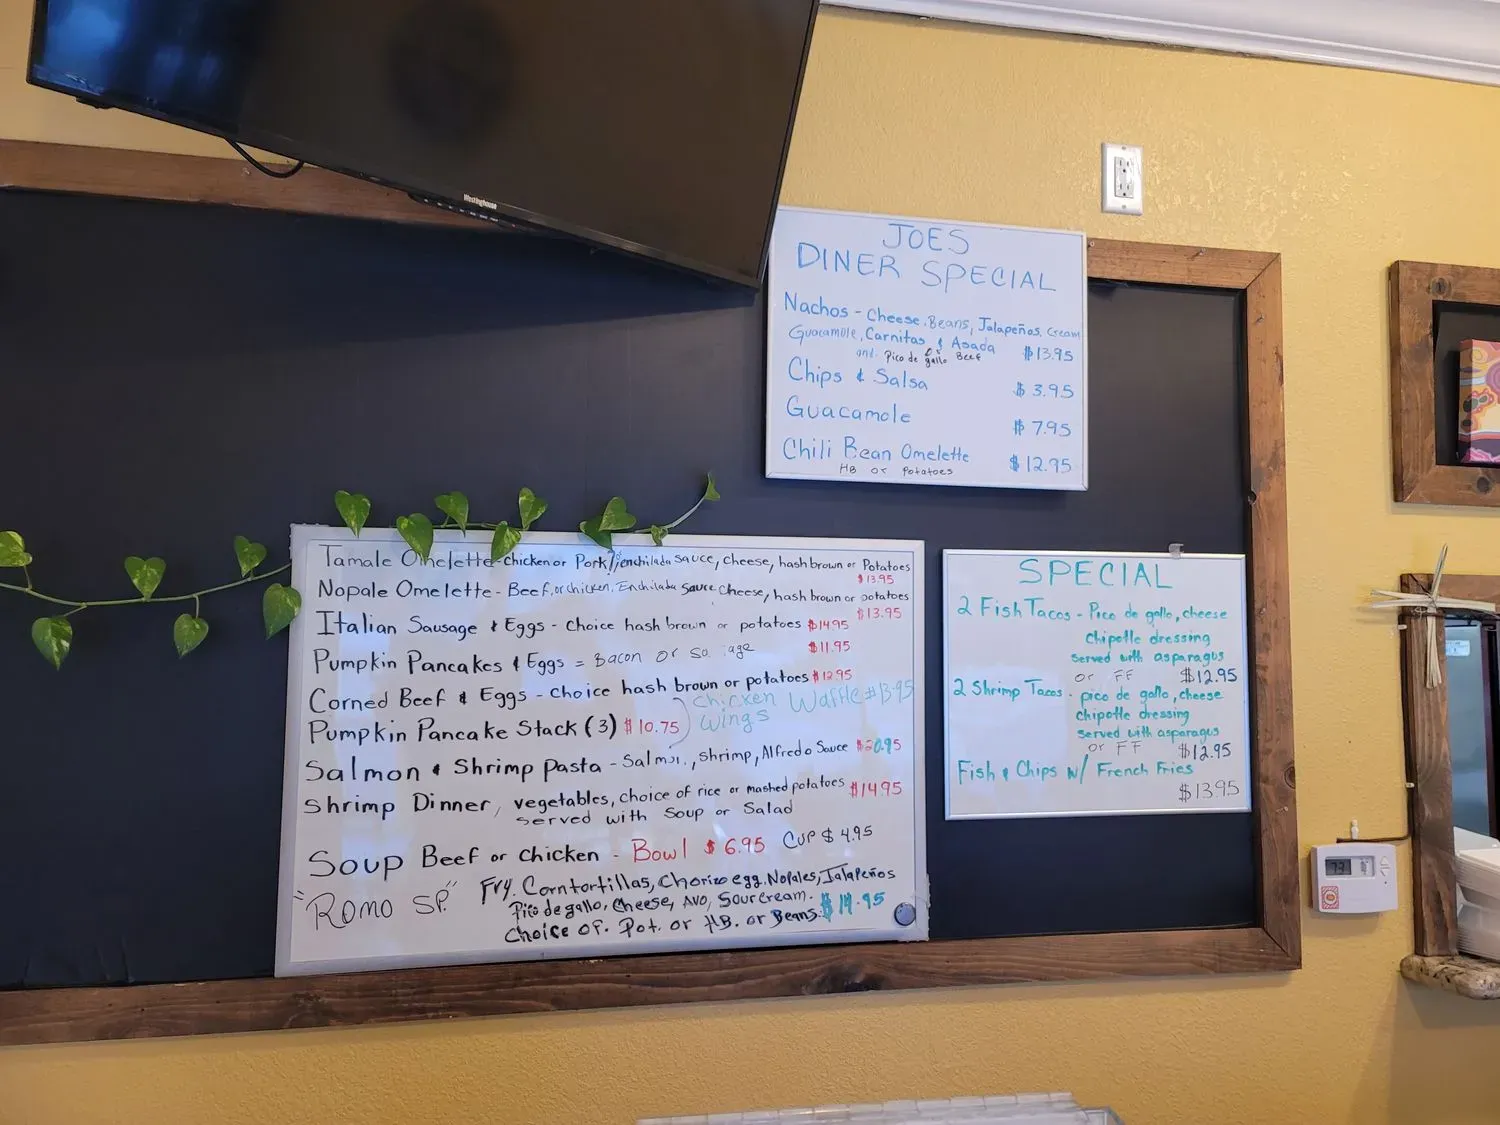 Westinghouse
JOES
DINER SPECIAL
Nachos - Cheese, Beans, Jalapeños, Cream
Guacamole, Carnitas & Asada
and. Pico de gallo or Beef $13.95
Chips & Salsa $3.95
Guacamole $7.95
Chili Bean Omelette $12.95
HB or Potatoes
Tamale Omelette - chicken or Pork, enchilada sauce, cheese, hash brown or Potatoes
$13.95
Nopale Omelette - Beef, or chicken, Enchilada Sauce cheese, hash brown or potatoes
$13.95
Italian Sausage & Eggs - choice hash brown or potatoes $14.95
Pumpkin Pancakes & Eggs = Bacon or $11.95
Corned Beef & Eggs - choice hash brown or potatoes $12.95
Pumpkin Pancake Stack (3) $10.75
Chicken Waffle $13.95
Wings
Salmon & Shrimp Pasta - Salmon, shrimp, Alfredo Sauce $20.95
Shrimp Dinner, vegetables, choice of rice or mashed potatoes $14.95
served with Soup or Salad
Soup Beef or chicken - Bowl $6.95 CUP $4.95
"Romo SP." Fry. Corntortillas, Chorizo egg, Nopales, Jalapeños
Pico de gallo, Cheese, Avo, Sour cream. $14.95
Choice of. Pot. or HB. or Beans.
SPECIAL
2 Fish Tacos - Pico de gallo, cheese
Chipotle dressing
served with asparagus
or FF $12.95
2 Shrimp Tacos - pico de gallo, cheese
chipotle dressing
served with asparagus
or FF $12.95
Fish & Chips w/ French Fries
$13.95